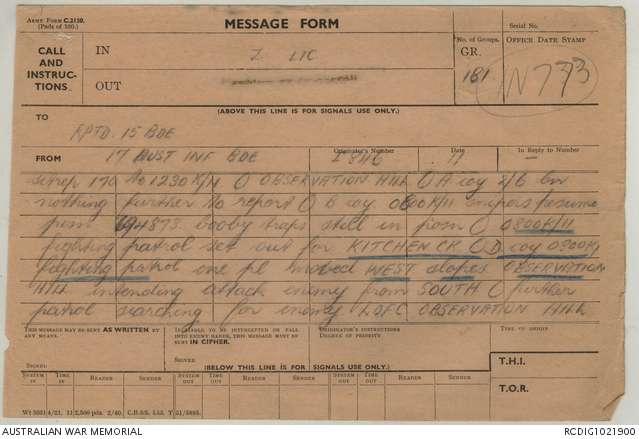 ARMY FORM C.2130.
(Pads of 100.)
MESSAGE FORM
Serial No.
CALL
AND
INSTRUC-
TIONS
IN
OUT
No. of Groups.
GR.
181
OFFICE DATE STAMP
IN 773
(ABOVE THIS LINE IS FOR SIGNALS USE ONLY.)
TO
RPTD. 15 BDE
FROM 17 AUST INF BDE
Originator's Number
Date
11
In Reply to Number
—
Sitrep 170 to 1230K/11 O OBSERVATION HILL O A coy 2/6 bn
nothing further to report O B coy 0800K/11 snipers
posn 694873 booby traps still in posn O 0800K/11
fighting patrol set out for KITCHEN CK O D coy 0900K/
fighting patrol one pl moved WEST slopes OBSERVATION
Hill intending attack enemy from SOUTH O further
patrol searching for enemy LOFC OBSERVATION HILL
THIS MESSAGE MAY BE SENT AS WRITTEN BY
ANY MEANS.
SIGNED
IF LIABLE TO BE INTERCEPTED OR FALL
INTO ENEMY HANDS, THIS MESSAGE MUST BE
SENT IN CIPHER.
SIGNED
ORIGINATOR'S INSTRUCTIONS
DEGREE OF PRIORITY
TIME OF ORIGIN
(BELOW THIS LINE IS FOR SIGNALS USE ONLY.)
T.H.I.
T.O.R.
SYSTEM IN
TIME IN
READER
SENDER
SYSTEM OUT
TIME OUT
READER
SENDER
SYSTEM OUT
TIME OUT
READER
SENDER
AUSTRALIAN WAR MEMORIAL
RCDIG1021900